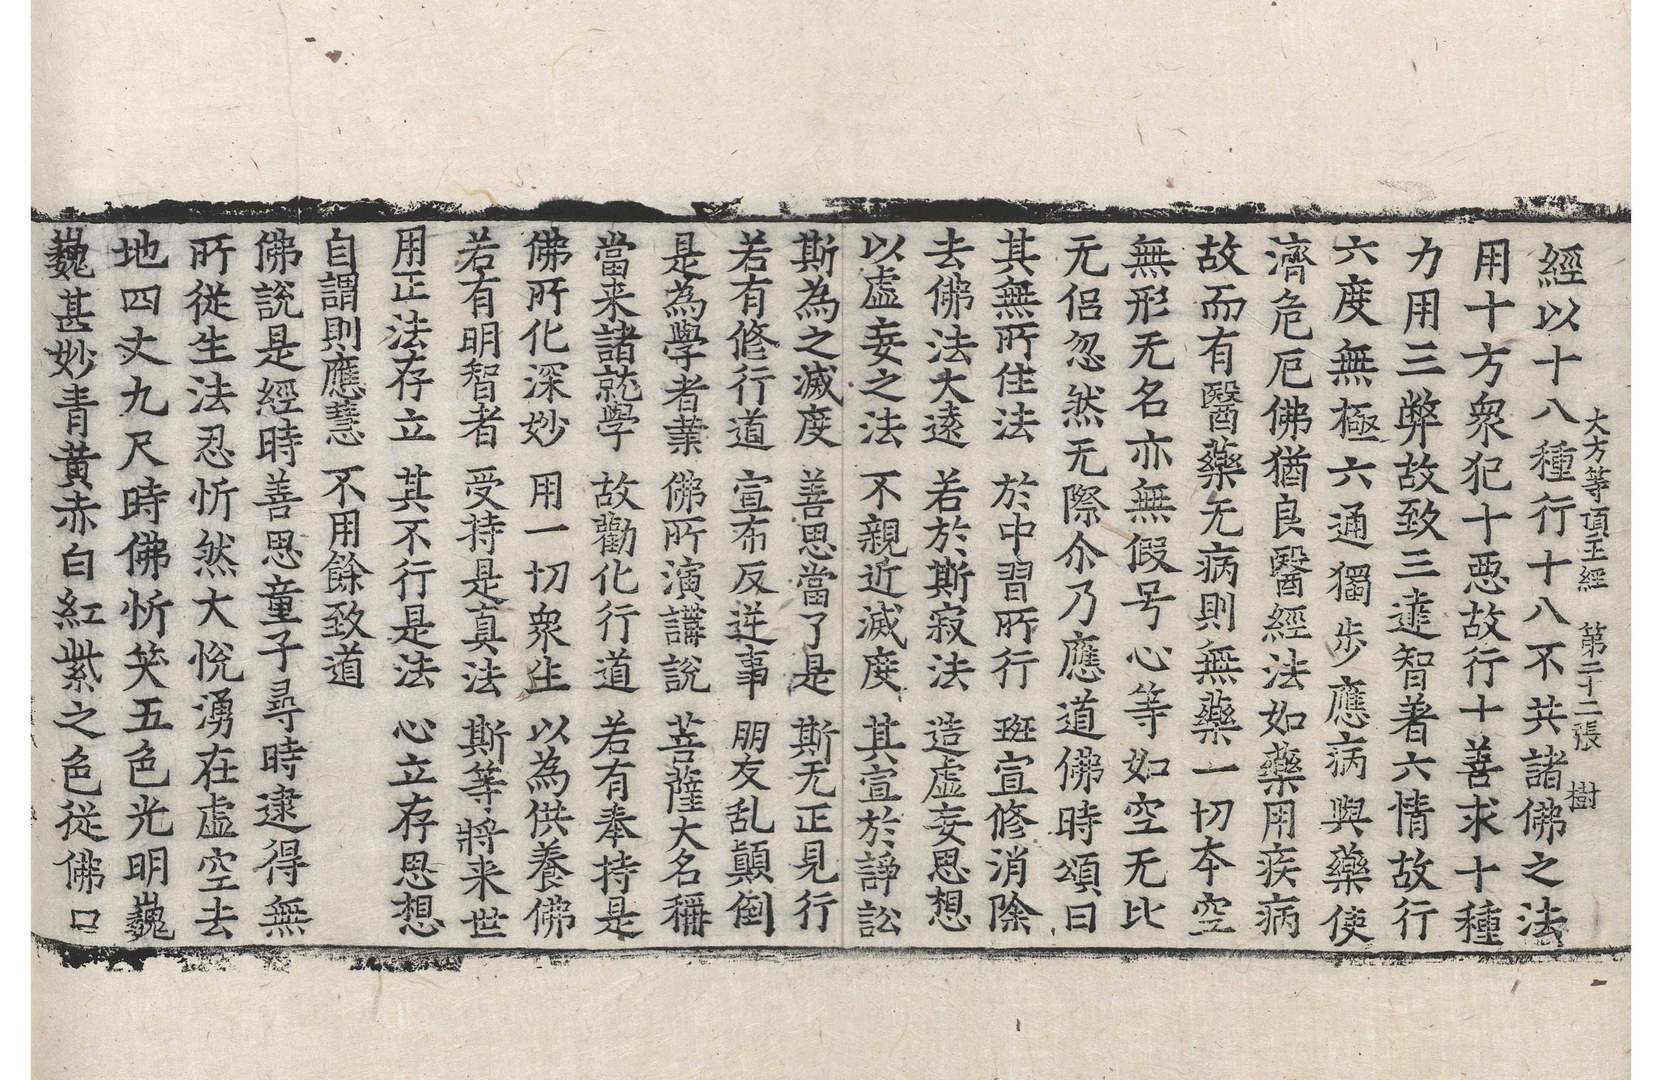 大方等頂王經 第二十二張 樹
經以十八種行十八不共諸佛之法
用十方衆犯十惡故行十善求十種
力用三弊故致三達智著六情故行
六度無極六通獨步應病與藥使
濟危厄佛猶良醫經法如藥用疾病
故而有醫藥无病則無藥一切本空
無形无名亦無假号心等如空无比
无侣忽然无際尒乃應道佛時頌曰
其無所住法 於中習所行 班宣修消除
去佛法大遠 若於斯寂法 造虛妄思想
以虛妄之法 不親近滅度 其宣於諍訟
斯為之滅度 善思當了是 斯无正見行
若有修行道 宣布反逆事 朋友乱顛倒
是為學者業 佛所演講說 菩薩大名稱
當来諸就學 故勸化行道 若有奉持是
佛所化深妙 用一切衆生 以為供養佛
若有明智者 受持是真法 斯等將来世
用正法存立 其不行是法 心立存思想
自謂則應慧 不用餘致道
佛說是經時善思童子尋時逮得無
所從生法忍忻然大悅湧在虛空去
地四丈九尺時佛忻笑五色光明巍
巍甚妙青黃赤白紅紫之色從佛口